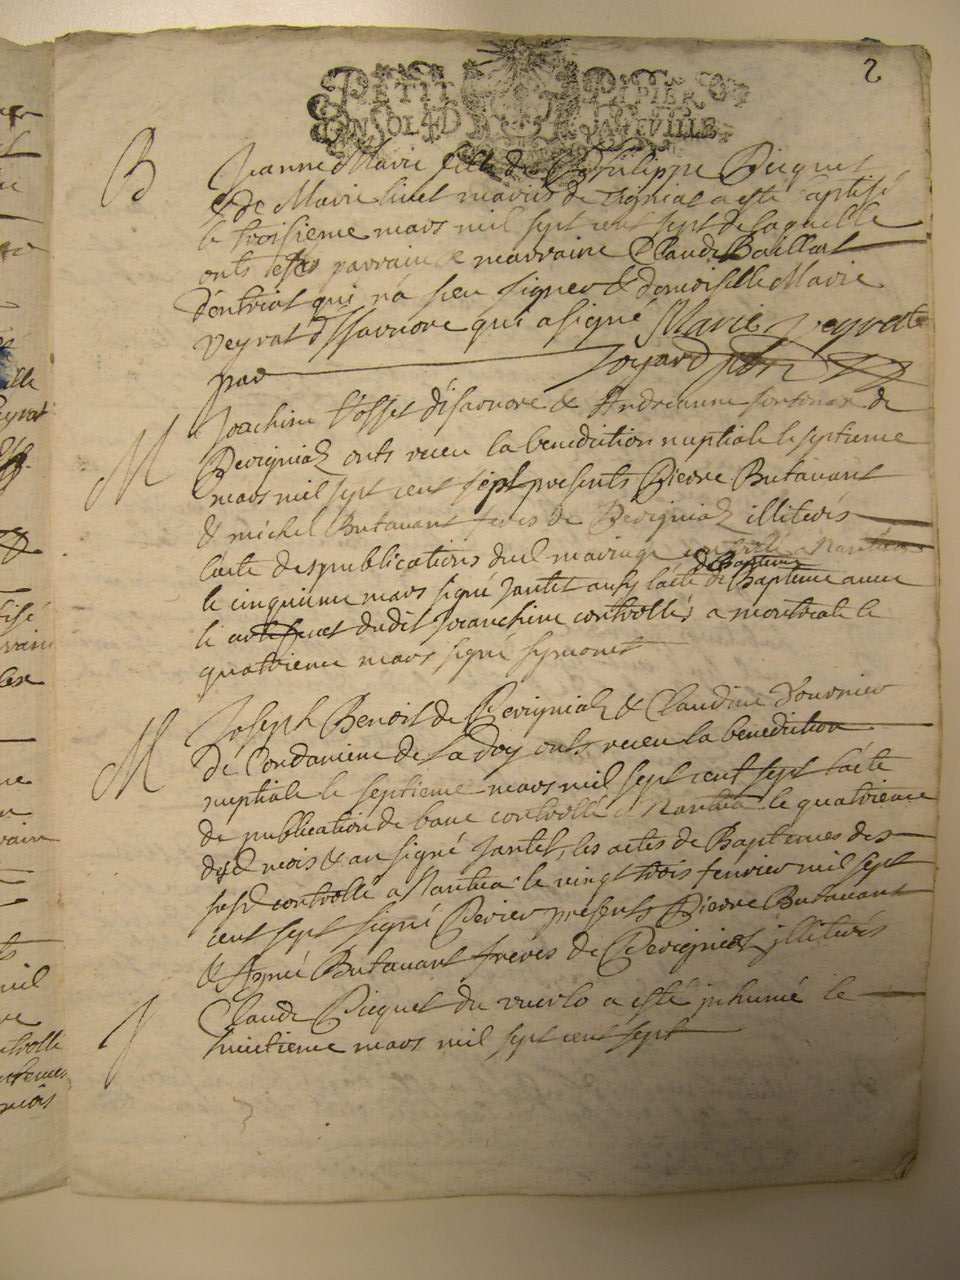 2
PETIT PAPIER
UN SOL 4 D LA FEUILLE
B Jeanne Marie fille de Philippe Picquet
& de Marie livet mariés de vigniat a esté baptisé
le troisieme mars mil sept cent sept de laquelle
onts estes parrain & marraine Claude Baillat
d'entriat qui n'a sceu signer & domoiselle Marie
veyrat d'Isarnore qui a signé Marie veyrat
par Joyard
M Joachim d'Isarnore & Andreanne de
Pevignia onts receu la benediction nuptiale le septieme
mars mil sept cent sept presents Pierre Butavant
& michel Butavant freres de Pevignia illiterés
lacte des publications dud mariage controlle a Nantua
le cinquieme mars signé Jantet aussy lacte de Bapteme avec
de Bapteme
le dudit Joanchim controllés a montreale le
quatrieme mars signé symonet
M Joseph Benoit de Pevignia & Claudine fournier
de Condamine de la Doy onts receu la benediction
nuptiale le septieme mars mil sept cent sept lacte
de publication de banc controllé a Nantua le quatrieme
dud mois & an signé Jantet, les actes de Baptemes des
susd controllé a Nantua le vingt trois fevrier mil sept
cent sept signé Perier presents Pierre Butavant
& Aymé Butavant freres de Pevignia illiterés
J Claude Picquet du a esté inhumé le
huitieme mars mil sept cent sept